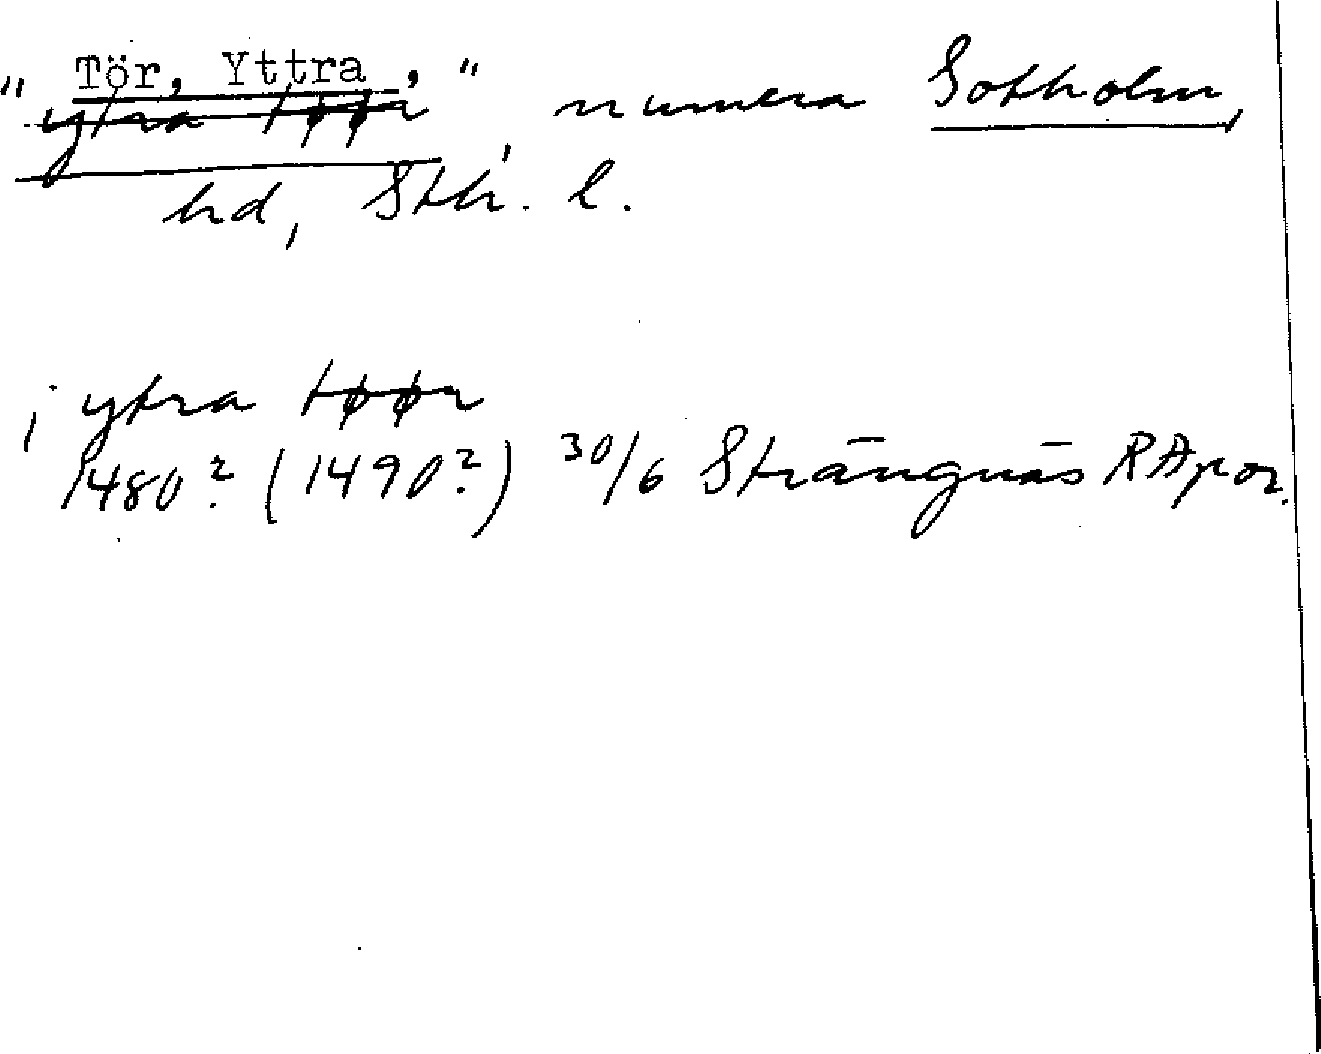 " Tör, Yttra , "
ytra tøør, numera Sotholm,
hd, Sth. l.
i ytra tøør
1480? (1490?) 30/6 Strängnäs RApor.